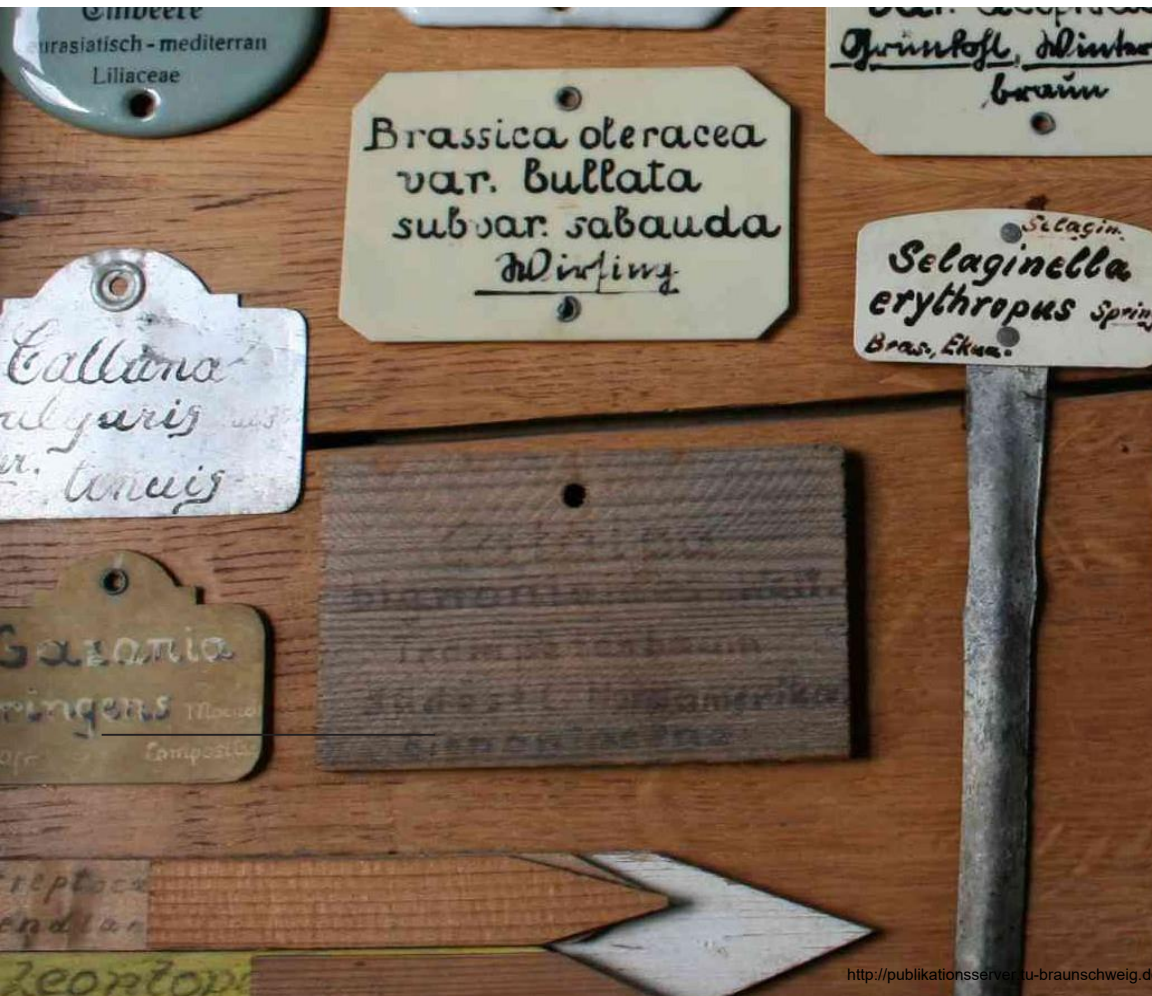 Einbeere
eurasiatisch - mediterran
Liliaceae
Grünkohl, Winter
braun
Brassica oleracea
var. bullata
subvar. sabauda
Wirsing
Selagin.
Selaginella
erythropus Spring
Bras., Ekua.
Calluna
vulgaris
var. tenuis
Catalpa
bignonioides Walt.
Trompetenbaum
südöstl. Nordamerika
Bignoniaceae
Gazania
ringens Moench
Composit
Leontop
http://publikationsserver.tu-braunschweig.d